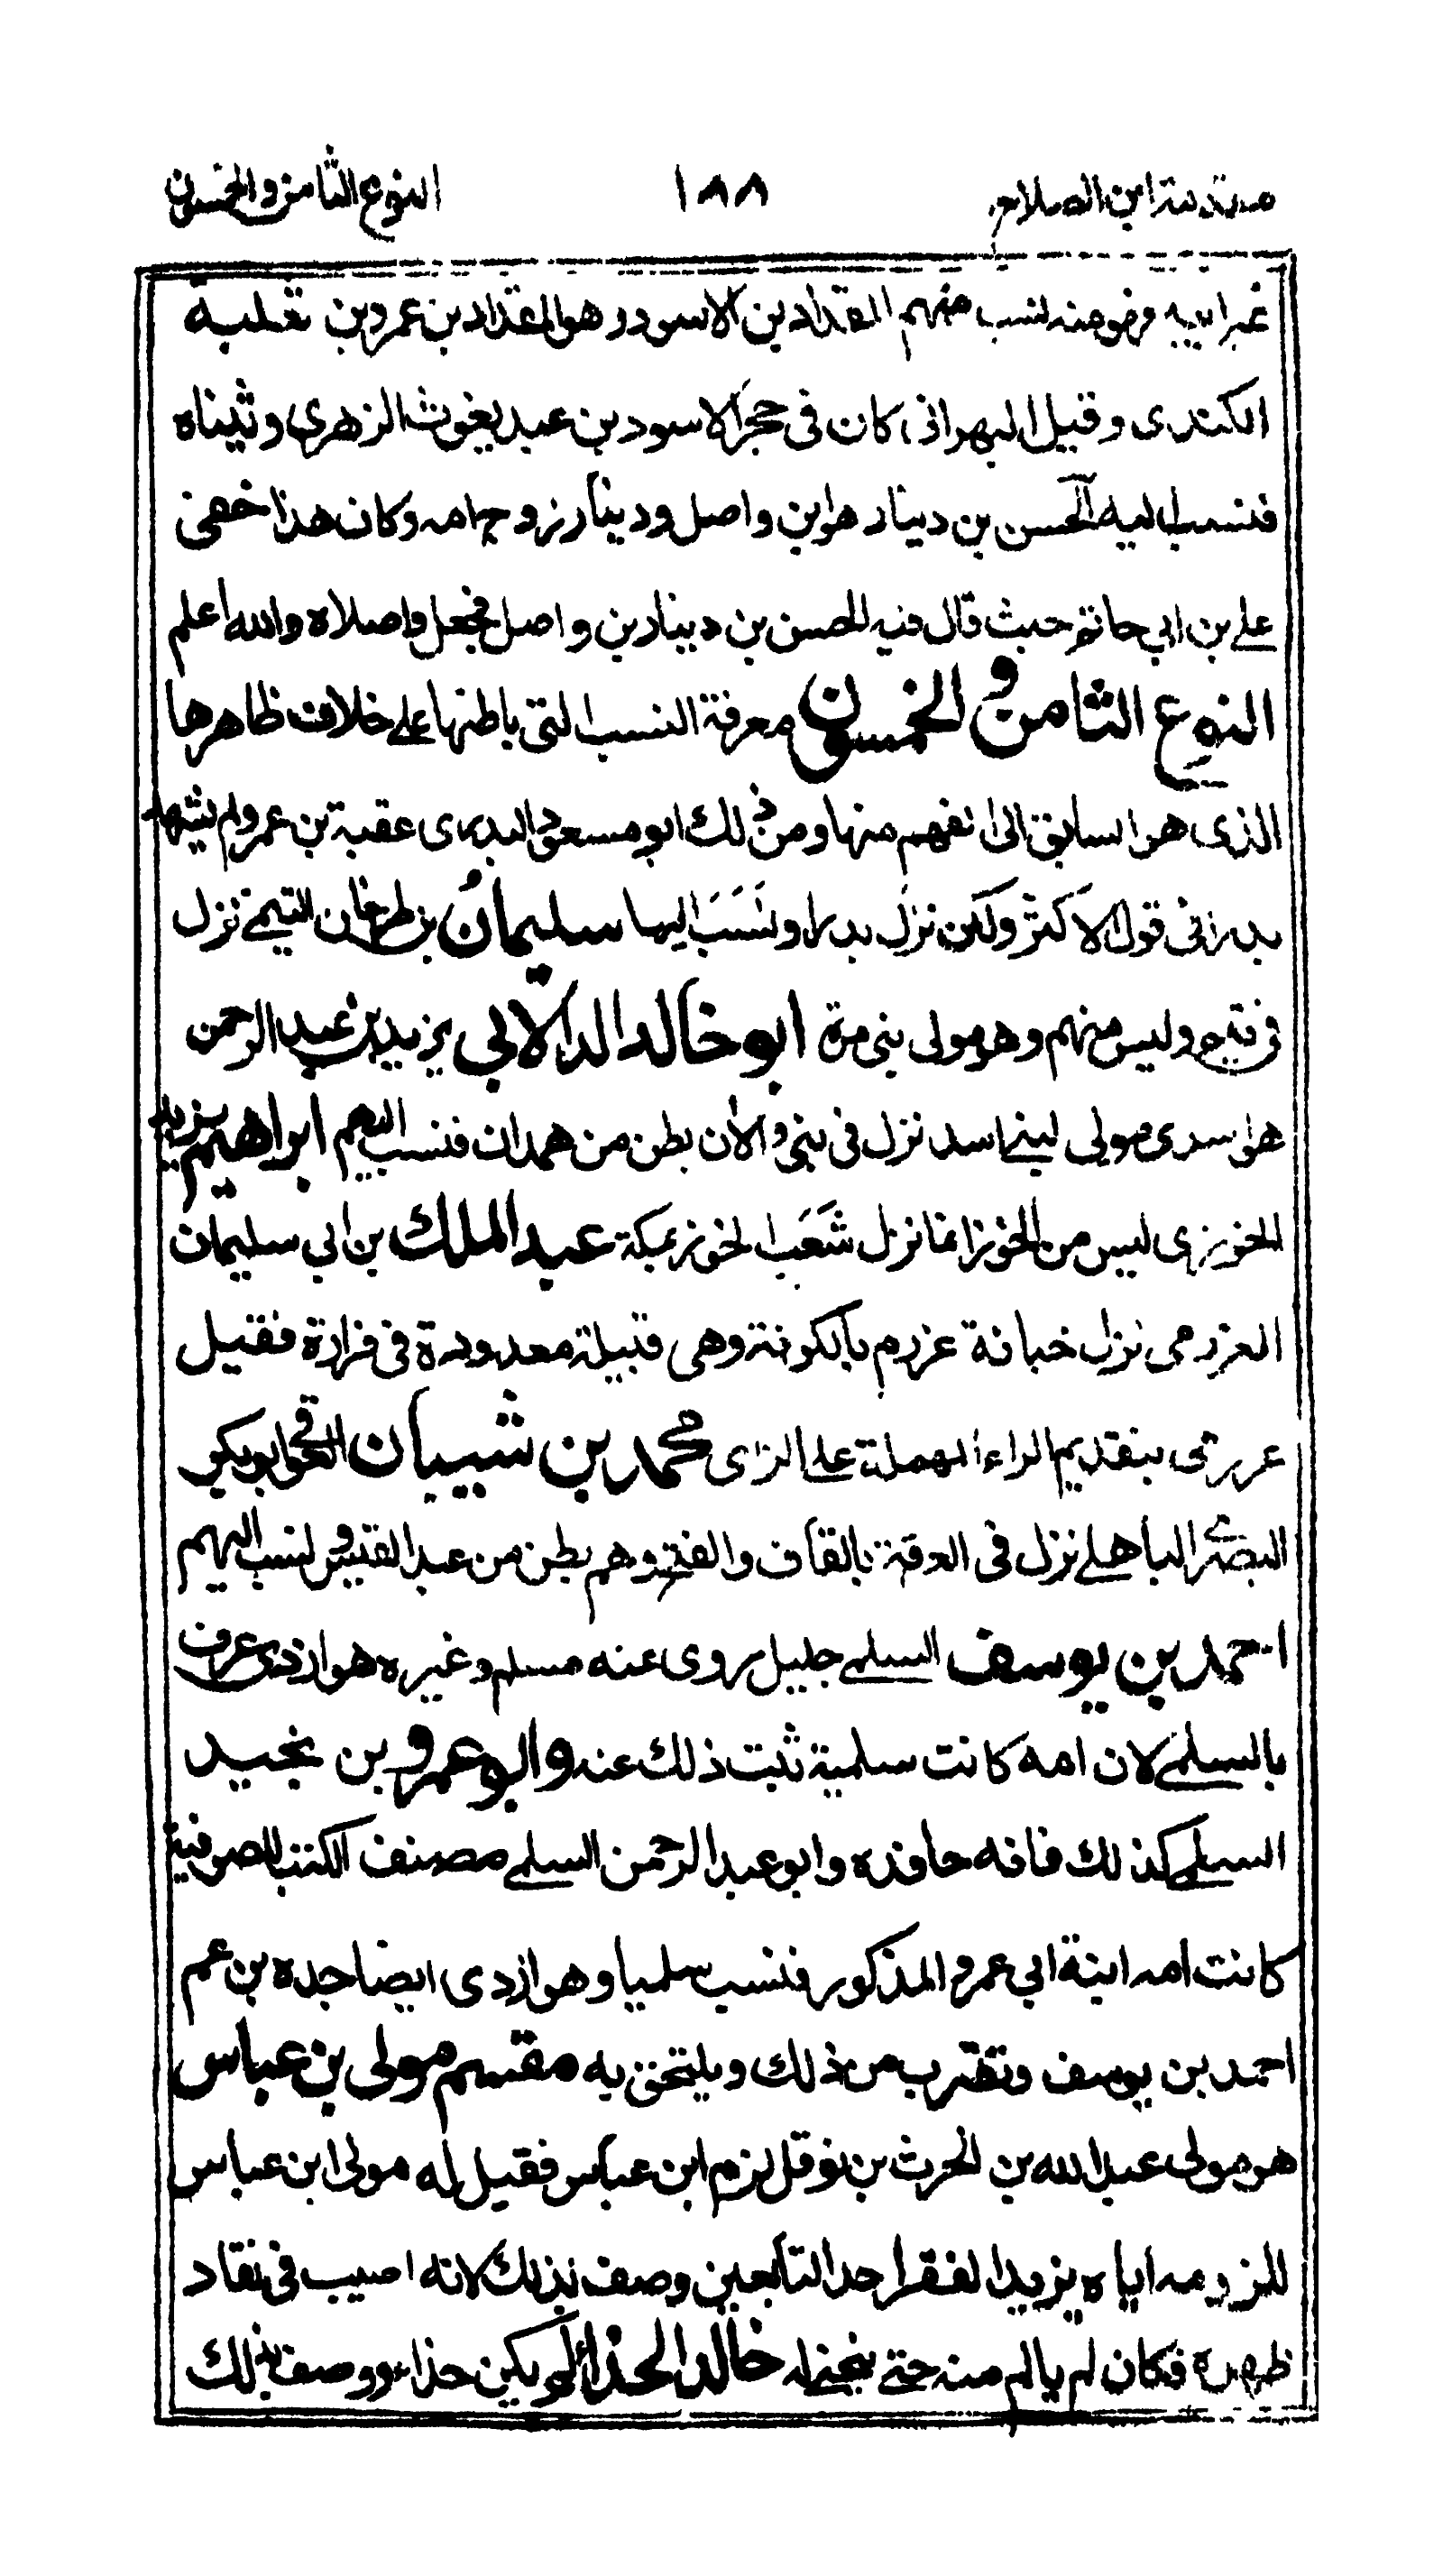 مقدمة ابن الصلاح ١٨٨ النوع الثامن والخمسون
غير ابيه فهو منه لنسب منهم المقداد بن الاسود وهو المقداد بن عمرو بن ثعلبة
الكندى وقيل البهرانى كان فى حجر الاسود بن عبد يغوث الزهرى وتبناه
فنسب اليه الحسن بن دينار هو ابن واصل ودينار زوج امه وكان هذا خفى
على بن ابى حاتم حيث قال فيه الحسن بن دينار بن واصل فجعل واصلا ه والله اعلم
النوع الثامن والخمسون معرفة النسب التى باطنها على خلاف ظاهرها
الذى هو السابق الى الفهم منها ومن ذلك ابو مسعود البدرى عقبة بن عمرو لم يشهد
بدرا فى قول الاكثر ولكن نزل بدرا ونسب اليها سليمان بن طرخان التيمى نزل
فى تيم وليس منهم وهو مولى بنى مرة ابو خالد الدالانى يزيد بن عبد الرحمن
هو اسدى مولى لبنى اسد نزل فى بنى دالان بطن من همدان فنسب اليهم ابراهيم بن يزيد
الخوزى ليس من الخوز انما نزل شعب الخوز بمكة عبد الملك بن ابى سليمان
العرزمى نزل جبانة عرزم بالكوفة وهى قبيلة معدودة فى فزارة فقيل
عرزمى بتقديم الراء المهملة على الزاى محمد بن شيبان العوقى ابو بكر
البصرى الباهلى نزل فى العوقة بالقاف والفتح وهم بطن من عبد القيس ونسب اليهم
احمد بن يوسف السلمى جليل روى عنه مسلم وغيره هو ازدى عرف
بالسلمى لان امه كانت سلمية ثبت ذلك عنه وابو عمرو بن نجيد
السلمى كذلك فانه حافده وابو عبد الرحمن السلمى مصنف الكتب للصوفية
كانت امه ابنة ابى عمرو المذكور فنسب سلميا وهو ازدى ايضا جده بن عم
احمد بن يوسف ونقرب من ذلك ويلتحق به مقسم مولى بن عباس
هو مولى عبد الله بن الحرث بن نوفل لزم ابن عباس فقيل له مولى ابن عباس
للزومه اياه يزيد الفقير احد التابعين وصف بذلك لانه اصيب فى فقار
ظهره فكان لم يالم منه حتى ينحنى له خالد الحذاء لم يكن حذاء ووصف بذلك